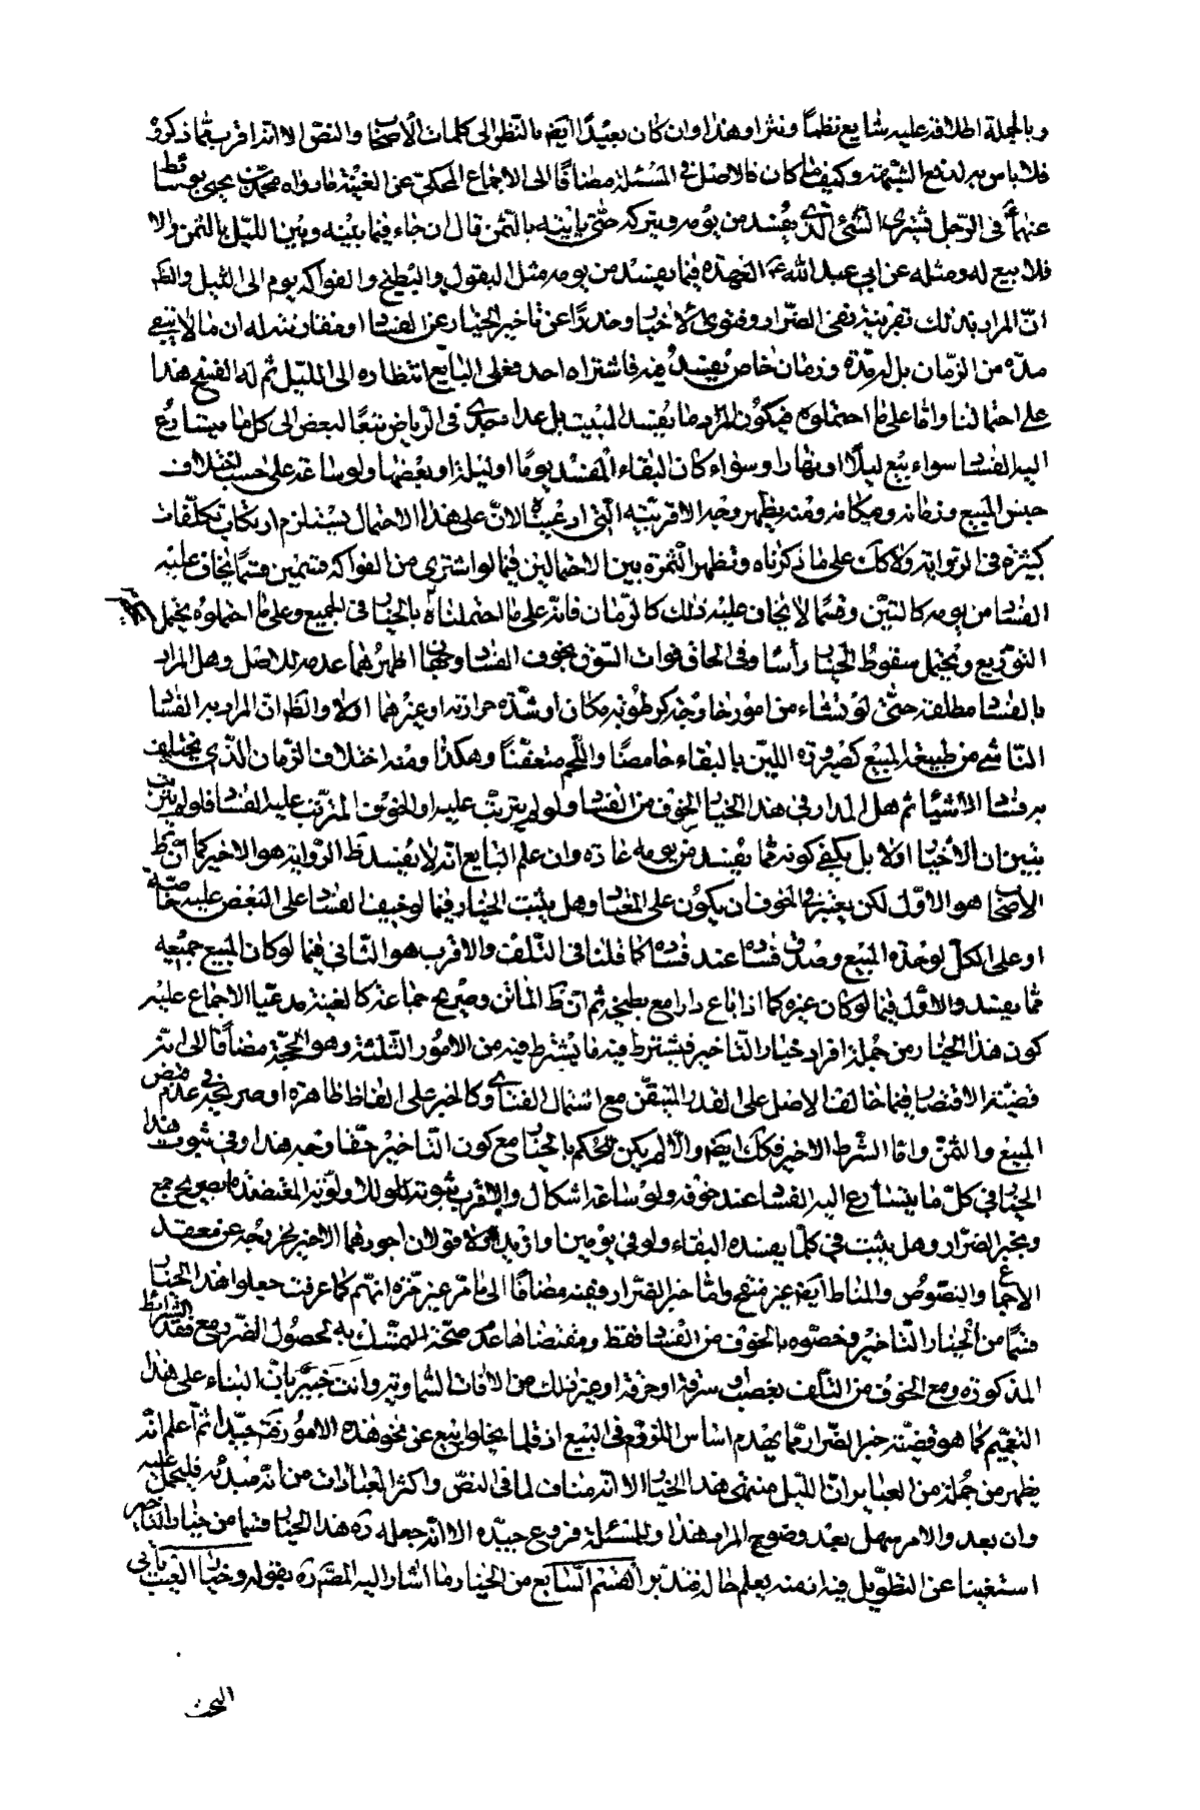 وبالجملة اطلاقه عليه شايع نظما ونثرا وهذا وان كان بعيدا ايضا بالنظر الى كلمات الأصحاب والنص الا انه اقرب مما ذكروه
فلا باس به لدفع الشبهة وكيف ما كان فالاصل في المسئلة مضافا الى الاجماع المحكي عن الغنية ما رواه محمد بن يحيى بو سائط
عنهما ع في الرجل يشترى الشئ الذي يفسد من يومه ويتركه حتى ياتيه بالثمن قال ان جاء فيما بينه وبين الليل بالثمن والا
فلا بيع له ومثله عن ابي عبد الله ع العهدة فيما يفسد من يومه مثل البقول والبطيخ والفواكه يوم الى الليل والظ
انّ المراد بذلك بقرينة نفى الضرار وفتوى الاخيار وحذرا عن تاخير الخيار عن الفساد او فقدانه ان ما لا يبقى
مدة من الزمان بل له مدة وزمان خاص يفسد فيه فاشتراه احد فعلى البايع انتظاره الى الليل ثم له الفسخ هذا
على احتمالنا واما على ما احتملوه فيكون المراد ما يفسد لمبيت بل عداه جدي في الرياض تبعا لبعض الى كل ما يتسارع
اليه الفساد سواء بيع ليلا او نهارا وسواء كان البقاء المفسد يوما او ليلة او بعضها ولو ساعة على حسب اختلاف
جنس المبيع وزمانه ومكانه ومنه يظهر وجه الاقربية التي ادعيناه الان على هذا الاحتمال يستلزم ارتكاب تكلفات
كثيرة في الرواية ولا كك على ما ذكرناه وتظهر الثمرة بين الاحتمالين فيما لو اشترى من الفواكه قسمين قسما يخاف عليه
الفساد من يومه كالتين وقسما لا يخاف عليه ذلك كالرمان فانه على ما احتملناه بالخيار في الجميع وعلى ما احتملوه يحتمل
التوزيع ويحتمل سقوط الخيار رأسا وفي الحاق فوات السوق بخوف الفساد وجهان اظهرهما عدمه للاصل وهل المراد
بالفساد مطلقه حتى لو نشاء من امور خارجة كرطوبة مكان او شدة حرارته او غيرهما اولا والظ ان المراد به الفساد
الناشي من طبيعة المبيع كصيرورة اللبن بالبقاء حامضا واللحم متعفنا وهكذا ومنه اختلاف الزمان الذي يختلف
به فساد الأشياء ثم هل المدار في هذا الخيار الخوف من الفساد ولو لم يترتب عليه او الخوف المترتب عليه الفساد فلو لم يترتب
تبين ان لا خيار اولا بل يكفى كونه مما يفسد من يومه عادة وان علم البايع انه لا يفسد ظ الرواية هو الاخير كما ان ظ
الاصحاب هو الاول لكن يعتبر في الخوف ان يكون على المعتاد وهل يثبت الخيار فيما لو خيف الفساد على البعض عليه خاصة
او على الكل لوحدة المبيع وصدق فساده عند فساده كما قلنا في التلف والاقرب هو الثاني فيما لو كان المبيع جميعه
مما يفسد والاول فيما لو كان غيره كما اذا باع دارا مع بطيخة ثم ان ظ الماتن وصريح جماعة كالغنية مدعيا الاجماع عليه
كون هذا الخيار من جملة افراد خيار التاخير فيشترط فيه ما يشترط فيه من الامور الثلثة وهو الحجة مضافا الى انه
قضية الاقتصار فيما خالف الاصل على القدر المتيقن مع اشتمال الفتاوى كالخبر على الفاظ ظاهرة او صريحة في عدم قبض
المبيع والثمن واما الشرط الاخير فكك ايضا والا لم يكن الحكم بالخيار مع كون التاخير حقا وجه هذا وفي ثبوت هذا
الخيار في كل ما يتسارع اليه الفساد عند خوفه ولو ساعة اشكال والاقرب ثبوته للاولوية المعتضدة بصريح جمع
وبخبر الضرار وهل يثبت في كلما يفسده البقاء ولو في يومين او ازيد اولا قولان اجودهما الاخير لخروجه عن معقد
الاجماع والنصوص والمناط ايضا غير منقح واما خبر الضرار ففيه مضافا الى ما مر غير مرة انهم كما عرفت جعلوا هذا الخيار
قسما من الخيار التاخير وخصوه بالخوف من الفساد فقط ومقتضاها عدم صحة التمسك به لحصول الضرر مع فقد الشرائط
المذكورة ومع الخوف من التلف بغصب او سرقة او حرقة او غير ذلك من الآفات السماوية وانت خبير بان البناء على هذا
التعميم كما هو قضية خبر الضرار مما يهدم اساس اللزوم في البيع اذ قلما يخلوا بيع عن نحو هذه الامور فتدبر جيدا ثم اعلم انه
يظهر من جملة من العبائر ان الليل منتهى هذا الخيار الا انه مناف لما في النص واكثر العبارات من انه مبدئه فليحمل عليه
وان بعد والامر سهل بعد وضوح المراد هذا وللمسئلة فروع جيده الا انه جعله ره هذا الخيار قسما من خيار التاخير
استغنينا عن التطويل فيه اذ منه يعلم حاله فتدبر القسم السابع من الخيار ما اشار اليه المصره بقوله وخيار العيب ياتى
البحث